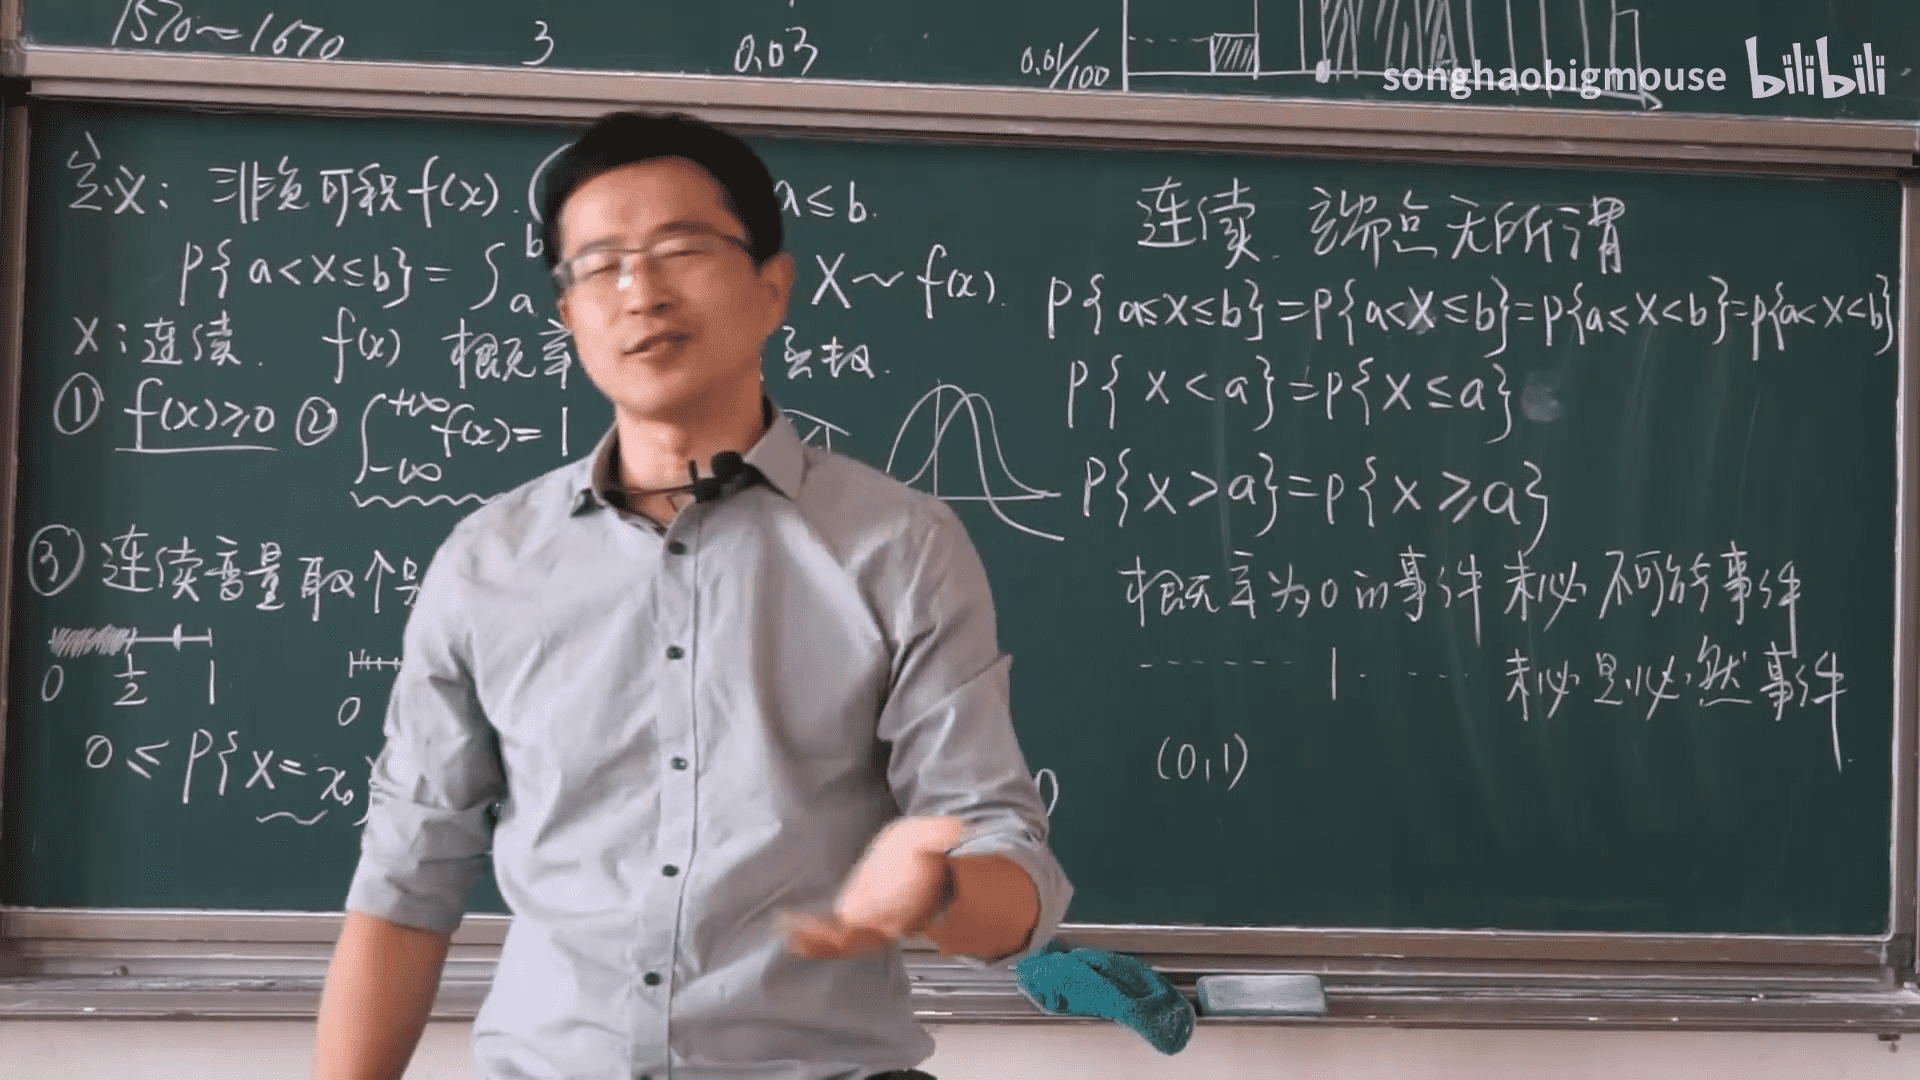 1570~1670 3 0.03 0.01/100
songhaobigmouse bilibili
定义: 非负可积f(x). a≤b.
P{a<X≤b}=∫ₐᵇ X~f(x).
X:连续. f(x) 概率 函数.
① f(x)≥0 ② ∫₋∞⁺∞f(x)=1
③ 连续变量取个别
0 1/2 1 0
0≤P{X=x₀} 0
连续. 端点无所谓
P{a≤X≤b}=P{a<X≤b}=P{a≤X<b}=P{a<X<b}
P{X<a}=P{X≤a}
P{X>a}=P{X≥a}
概率为0的事件 未必不可能事件
------ 1.---- 未必是必然事件.
(0,1)